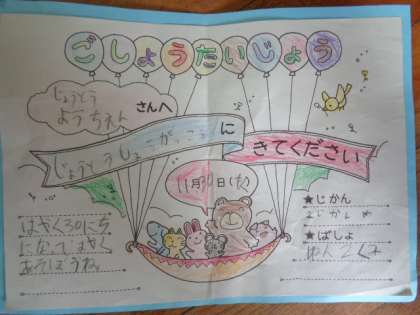 ごしょうたいじょう
じょうとう
ようちえん
さんへ
じょうとうしょうがっこう
に
きてください
11月30日(水)
★じかん
2じかんめ
★ばしょ
はやく30にち
になってはやく
あそぼうね。